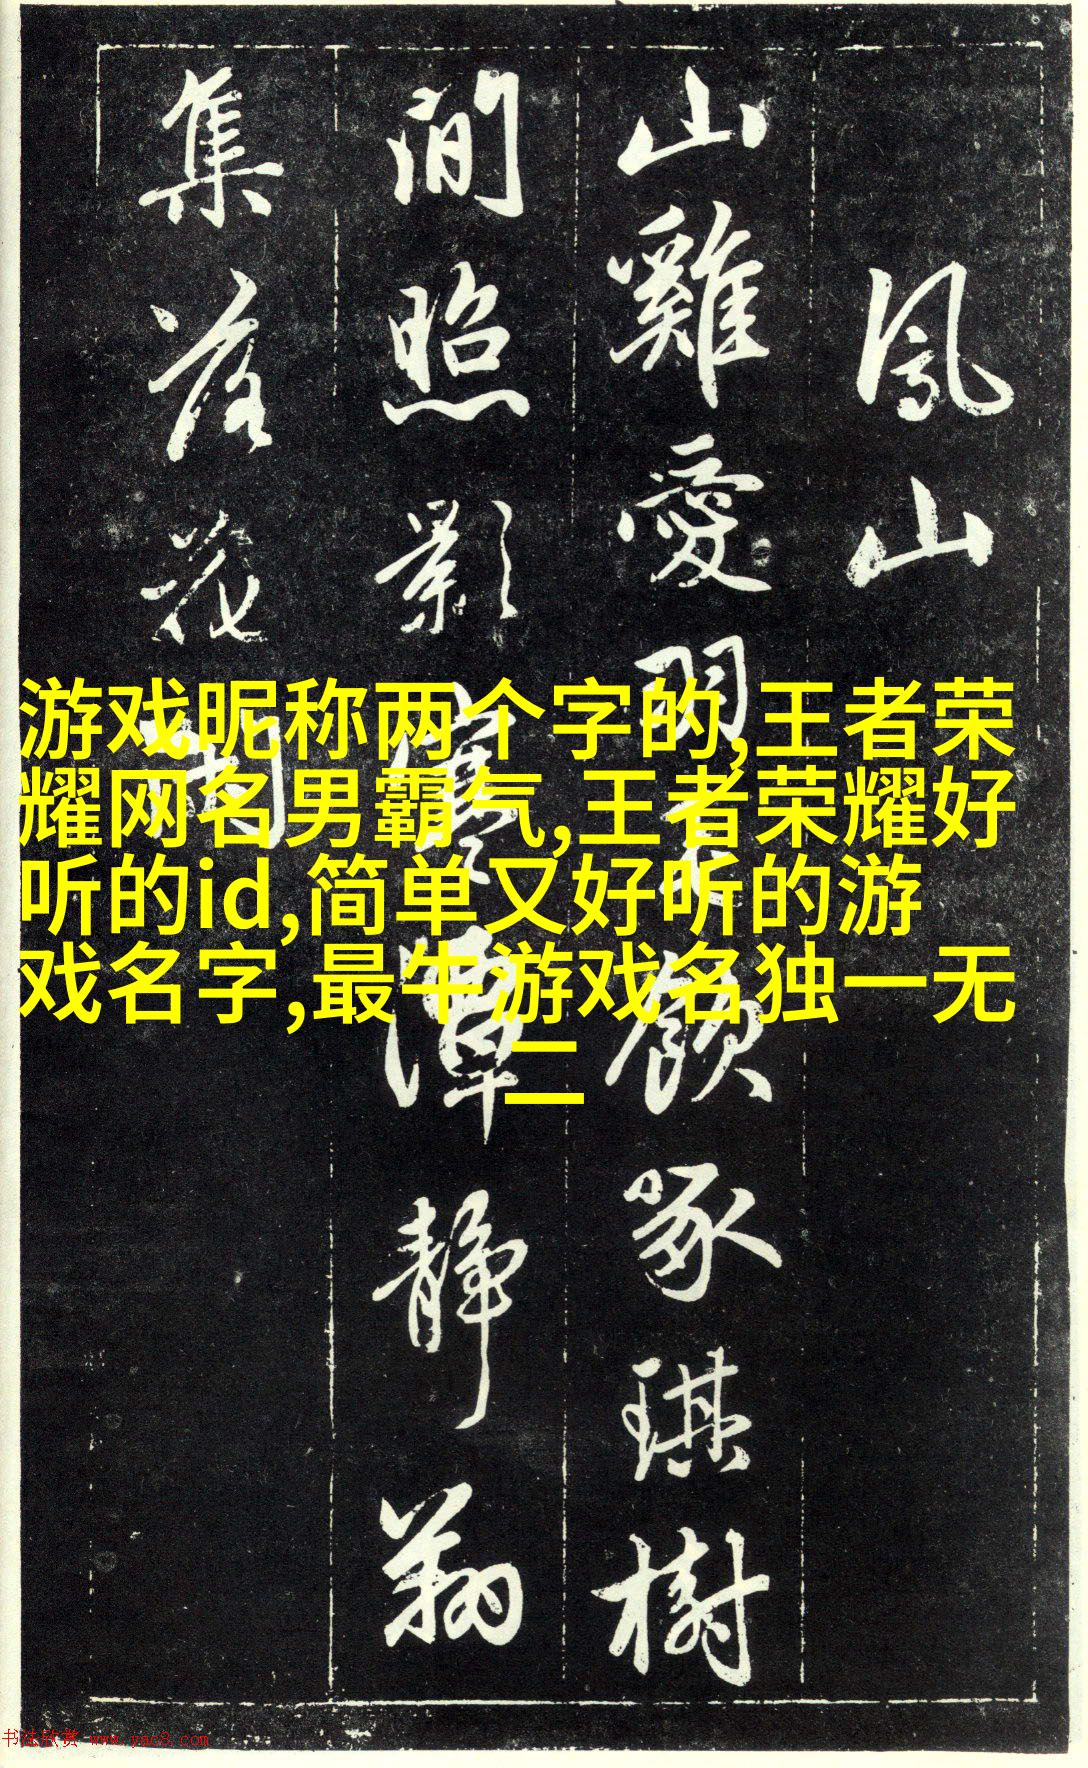 鳳山
山雞愛羽毛飲啄琪樹
間照影寒潭靜翔
集落花間
游戏昵称两个字的,王者荣
耀网名男霸气,王者荣耀好
听的id,简单又好听的游
戏名字,最牛游戏名独一无
二
书法欣赏 www.yac8.com